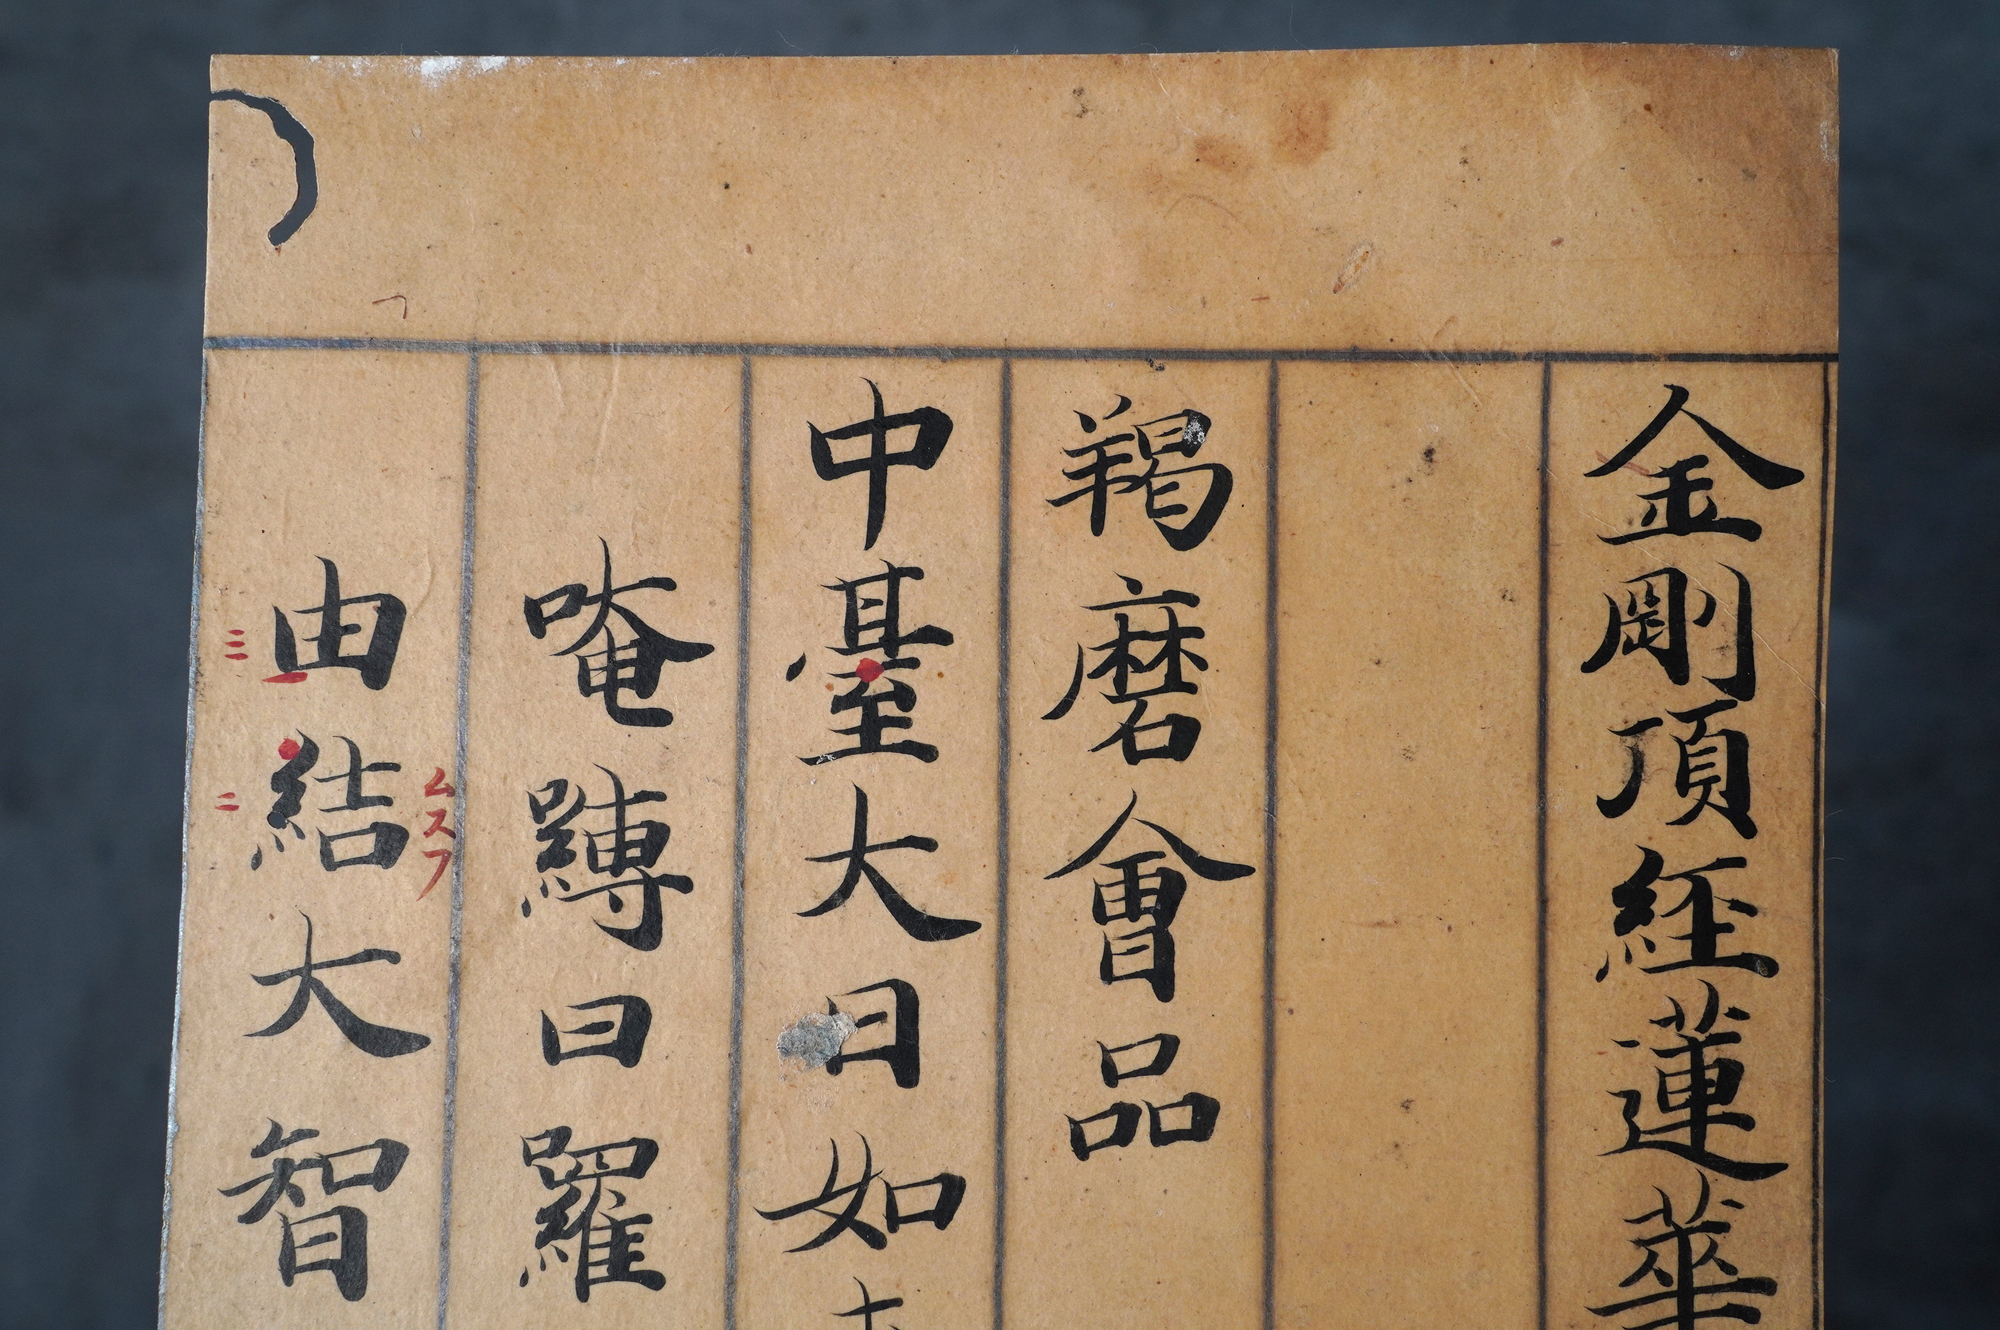 金剛頂經蓮華
羯磨會品
中臺大日如
唵縛曰羅
由結大智
三
二
ムスフ